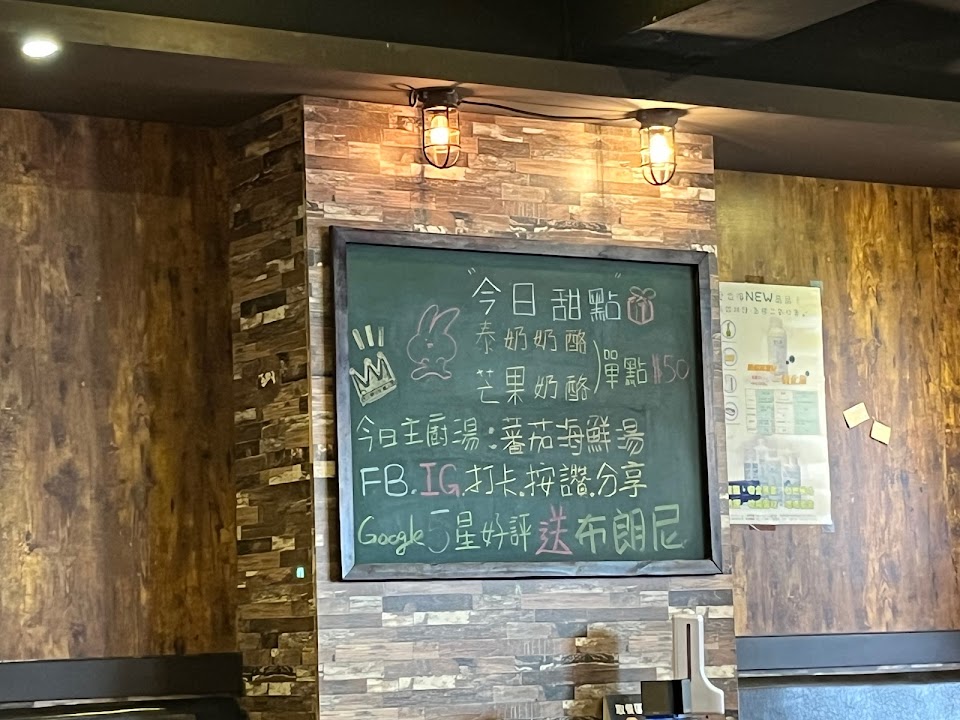 "今日甜點"
泰奶奶酪
芒果奶酪
)單點 $50
今日主廚湯:蕃茄海鮮湯
FB.IG.打卡.按讚.分享
Google 5星好評送布朗尼
NEW